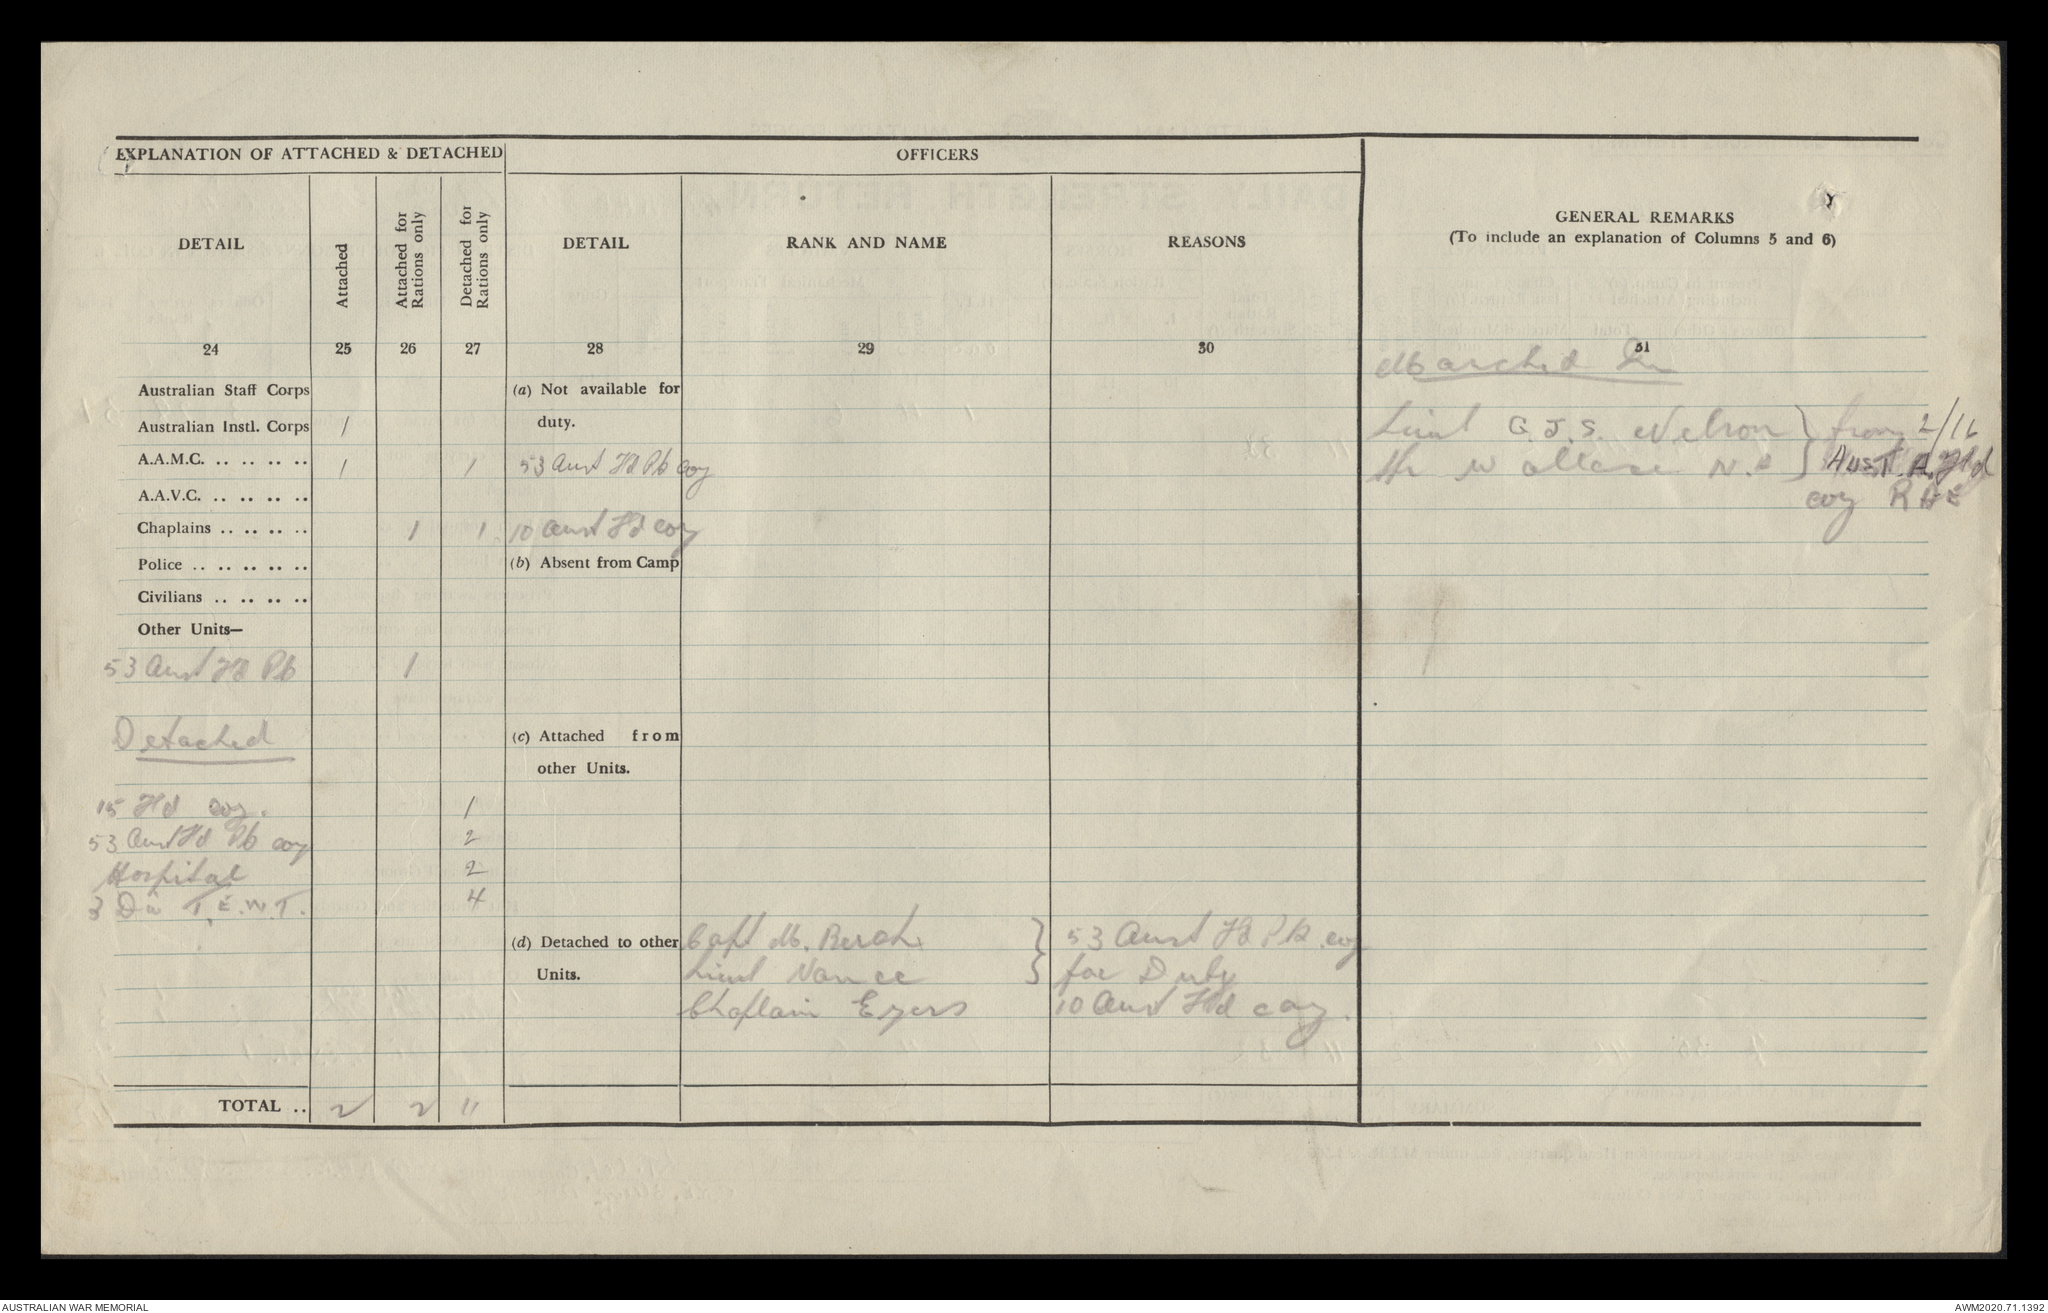 EXPLANATION OF ATTACHED & DETACHED
OFFICERS
GENERAL REMARKS
(To include an explanation of Columns 5 and 6)
DETAIL
Attached
Attached for Rations only
Detached for Rations only
DETAIL
RANK AND NAME
REASONS
24 25 26 27 28 29 30 31
Marched In
Australian Staff Corps
(a) Not available for
duty.
Australian Instl. Corps 1
Lieut G.J.S. Nelson } from 2/16
A.A.M.C. .. .. .. .. 1 1 53 Aust Fd Pk coy
Wallace N. } AUST. A. Fld
A.A.V.C. .. .. .. ..
coy RAE
Chaplains .. .. .. .. 1 1 10 Aust Fd coy
Police .. .. .. .. ..
(b) Absent from Camp
Civilians .. .. .. ..
Other Units—
53 Aust Fd Pk 1
Detached
(c) Attached from
other Units.
15 Fd coy. 1
53 Aust Fd Pk coy 2
Hospital 2
3 Div T.E.W.T. 4
(d) Detached to other
Units.
Capt M. } 53 Aust Fd Pk coy
Lieut Vance } for Duty
Chaplain Eyers 10 Aust Fd coy.
TOTAL .. 2 2 11
AUSTRALIAN WAR MEMORIAL
AWM2020.71.1392